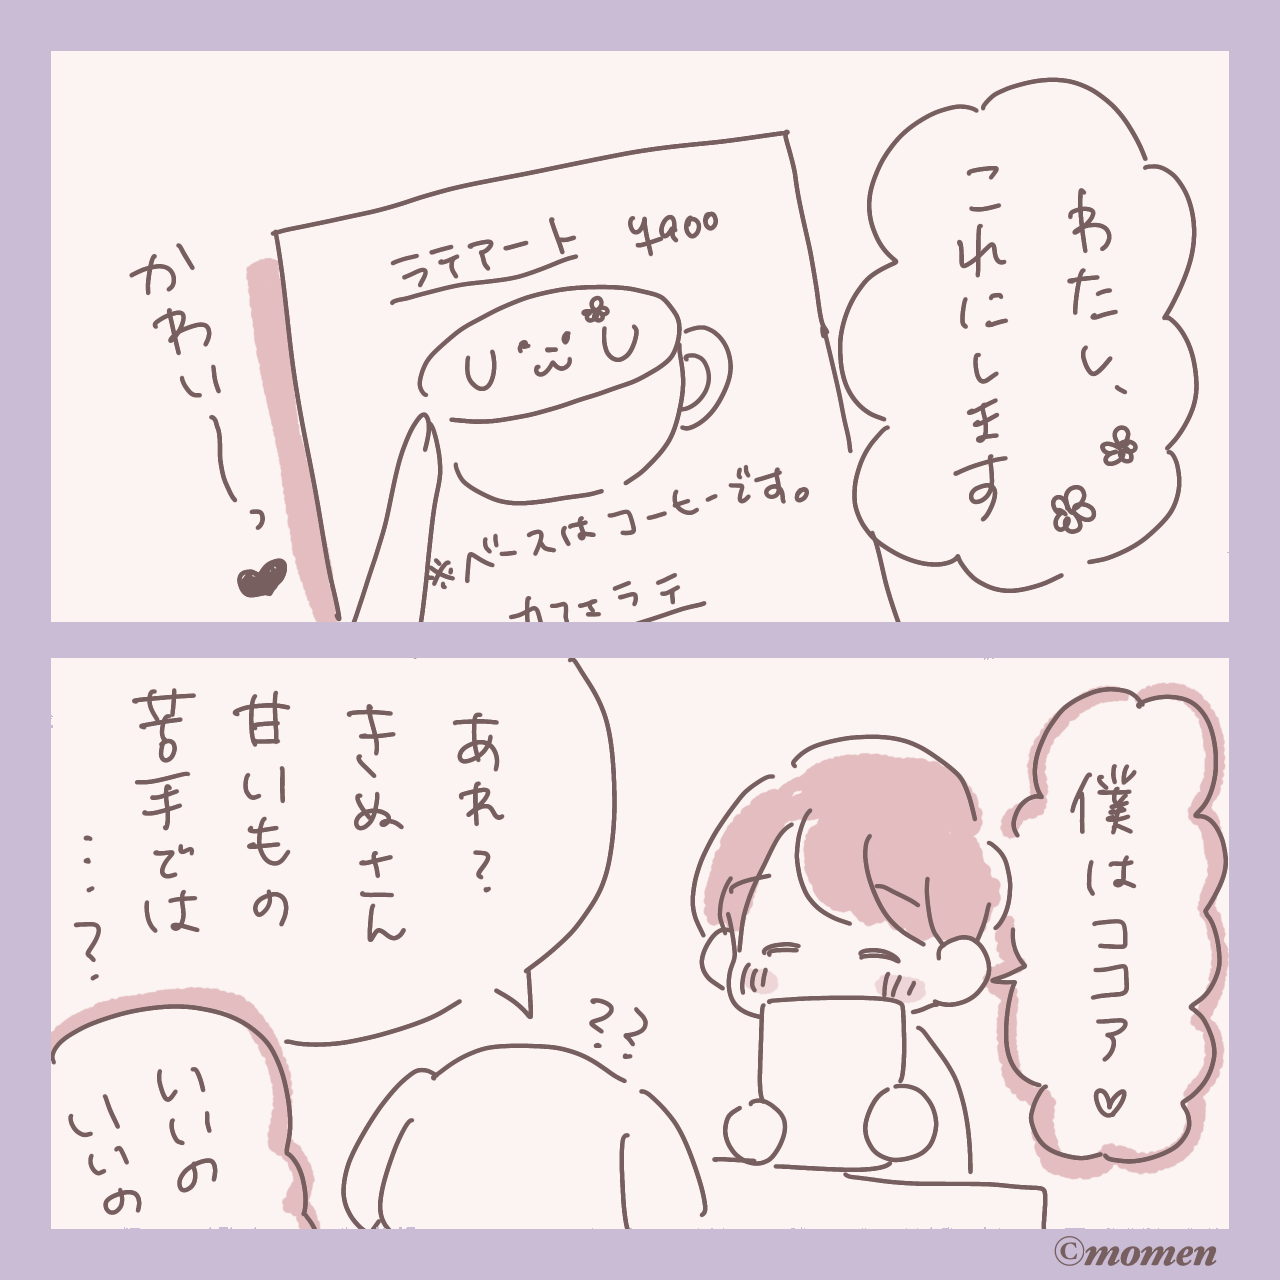 わたし、
これにします
ラテアート ¥900
※ベースはコーヒーです。
カフェラテ
かわいーっ
僕はココア♡
あれ?
きぬさん
甘いもの
苦手では
…?
??
いいの
いいの
©momen